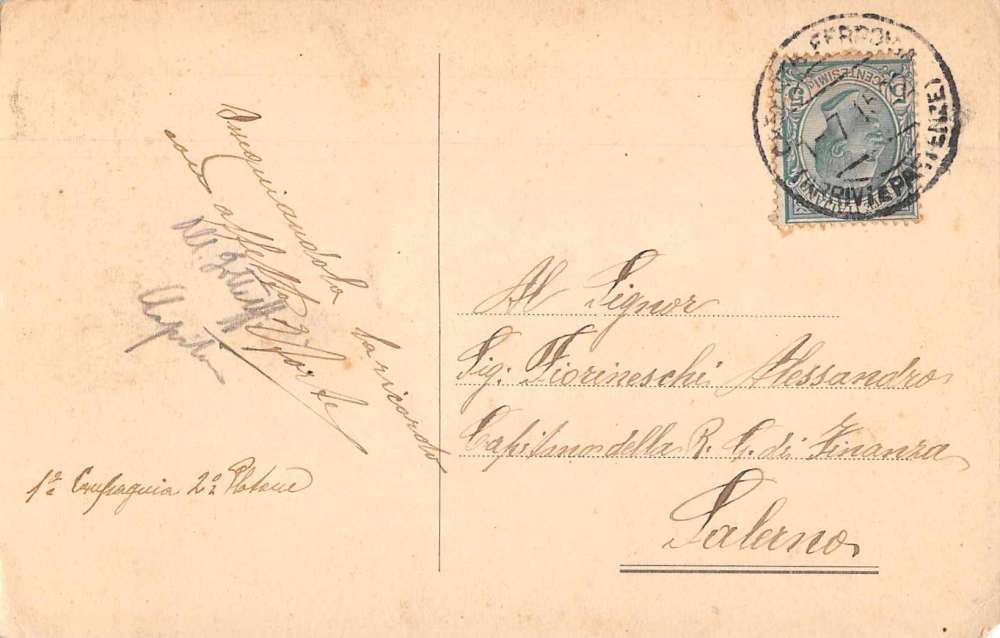 Ossequiandola
con affetto
la ricordo
1ª Compagnia 2º Plotone
CENTESIMI
FERROVIA
(ARRIVI E PARTENZE)
Al Signor
Sig. Fiorineschi Alessandro
Capitano della R. G. di Finanza
Salerno